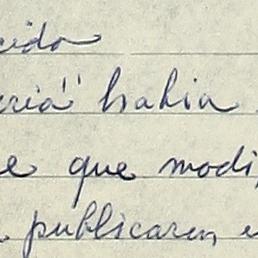 cida
eria" habia
e que modi
publicaren e